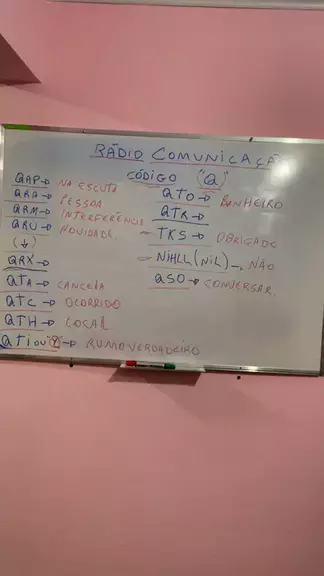 RÁDIO COMUNICAÇÃO
CÓDIGO "Q"
QAP→ NA ESCUTA
QRA→ PESSOA
QRM→ INTERFERÊNCIA
QRU→ NOVIDADE
(↓)
QRX→
QTA→ CANCELA
QTC→ OCORRIDO
QTH→ LOCAL
QTI ou → RUMO VERDADEIRO
QTO→ BANHEIRO
QTR→
– TKS→ OBRIGADO
– NIHLL (NIL)→ NÃO
QSO→ CONVERSAR